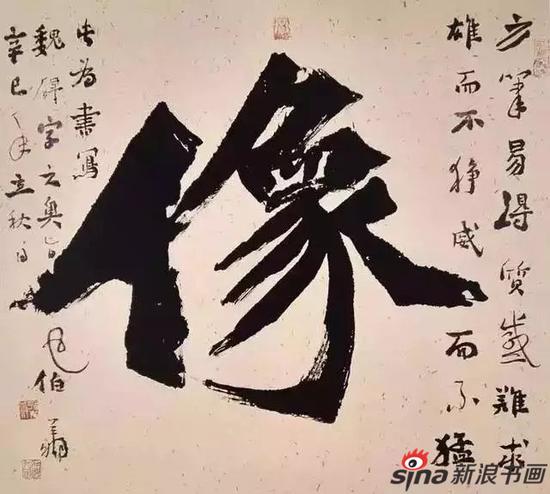 方筆易得質感難求
雄而不狰威而不猛
像
此为書寫
魏碑字之奥旨
辛巳年立秋日
伯
sina 新浪书画